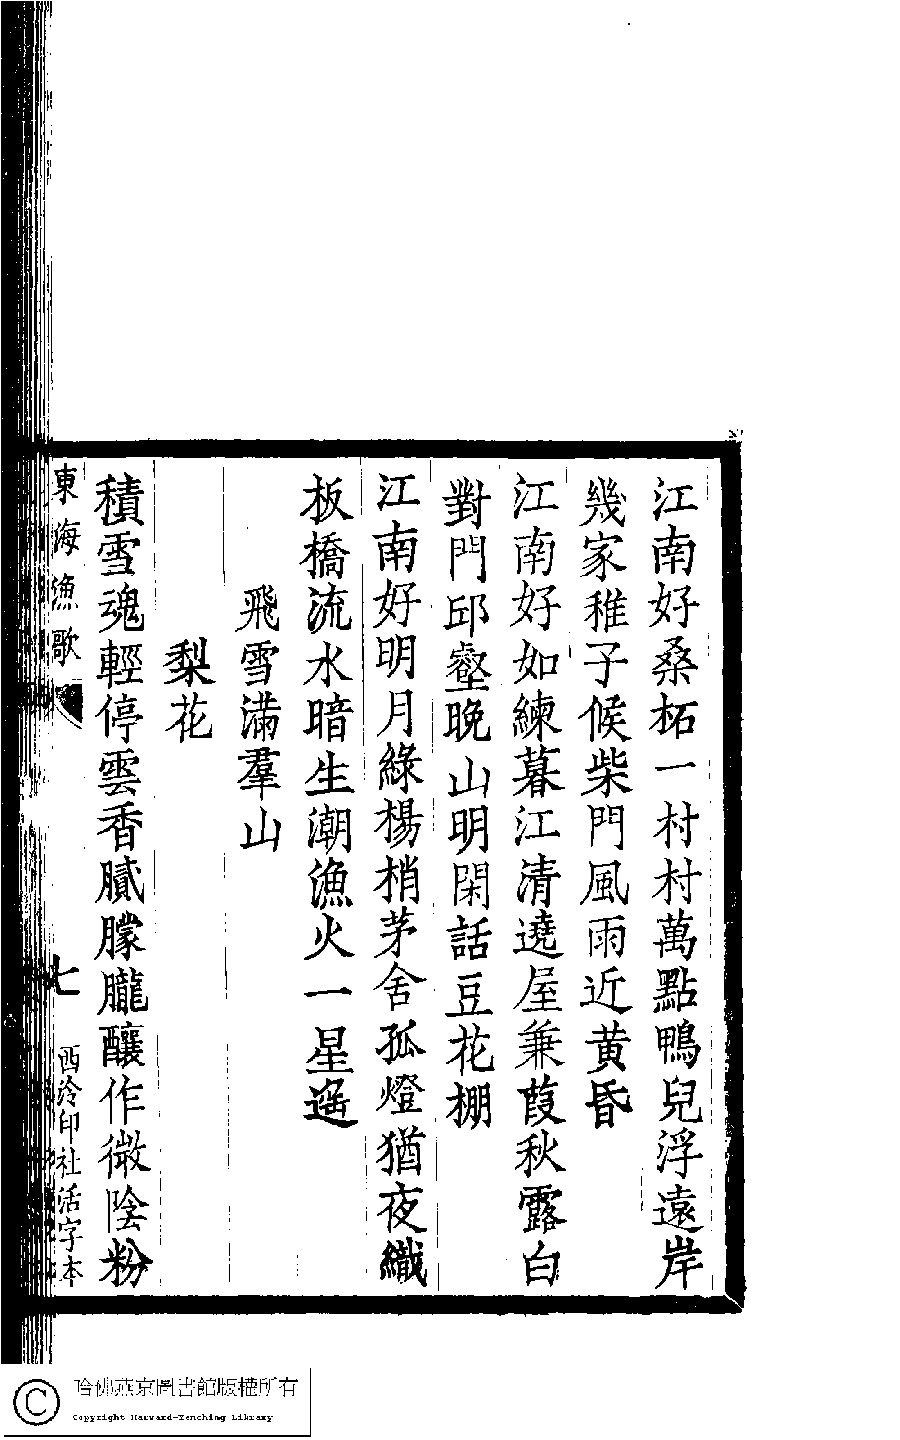 江南好桑柘一村村萬點鴨兒浮遠岸
幾家稚子候柴門風雨近黄昏
江南好如練暮江清遶屋蒹葭秋露白
對門邱壑晚山明閑話豆花棚
江南好明月綠楊梢茅舍孤燈猶夜織
板橋流水暗生潮漁火一星遥
飛雪滿羣山
梨花
積雪魂輕停雲香膩朦朧釀作微陰粉
東海漁歌
七
西泠印社活字本
哈佛燕京圖書館版權所有
Copyright Harvard-Yenching Library